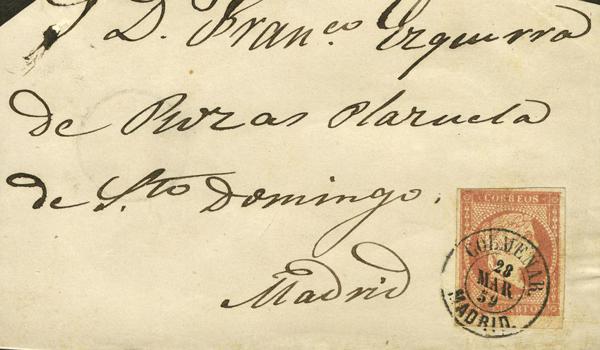 S D. Fran.co Ezquerra
de Rozas Plazuela
de Sto Domingo.
Madrid
CORREOS
COLMENAR.
28
MAR
59
MADRID.
CUARTOS